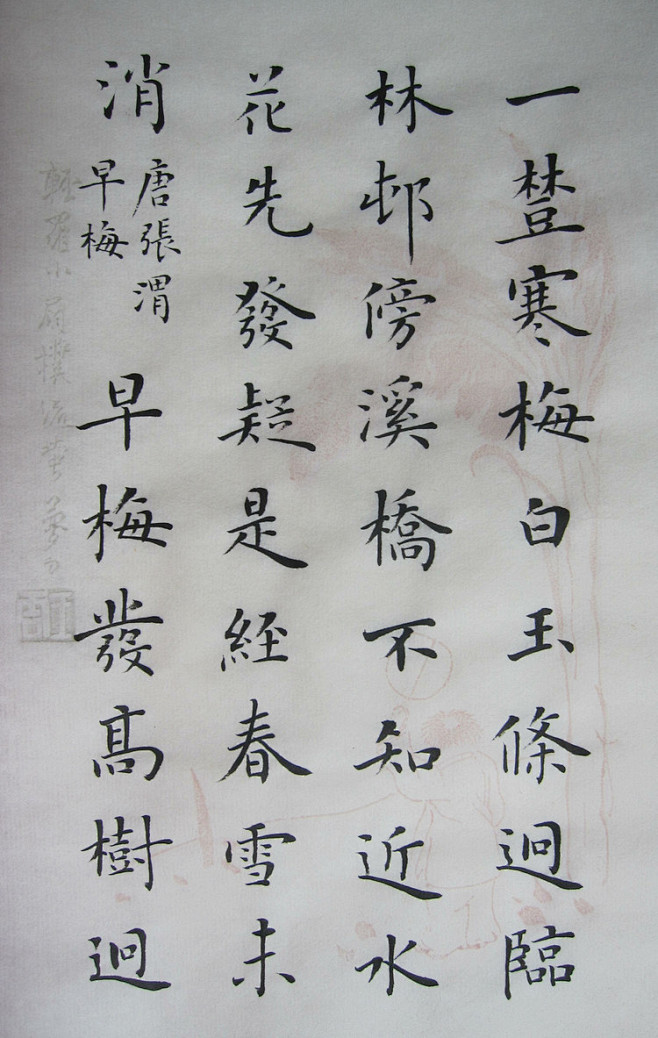 一𣗳寒梅白玉條迥臨
林邨傍溪橋不知近水
花先發疑是經春雪未
消
唐張渭
早梅
早梅發髙樹迥
輕羅小扇撲流螢